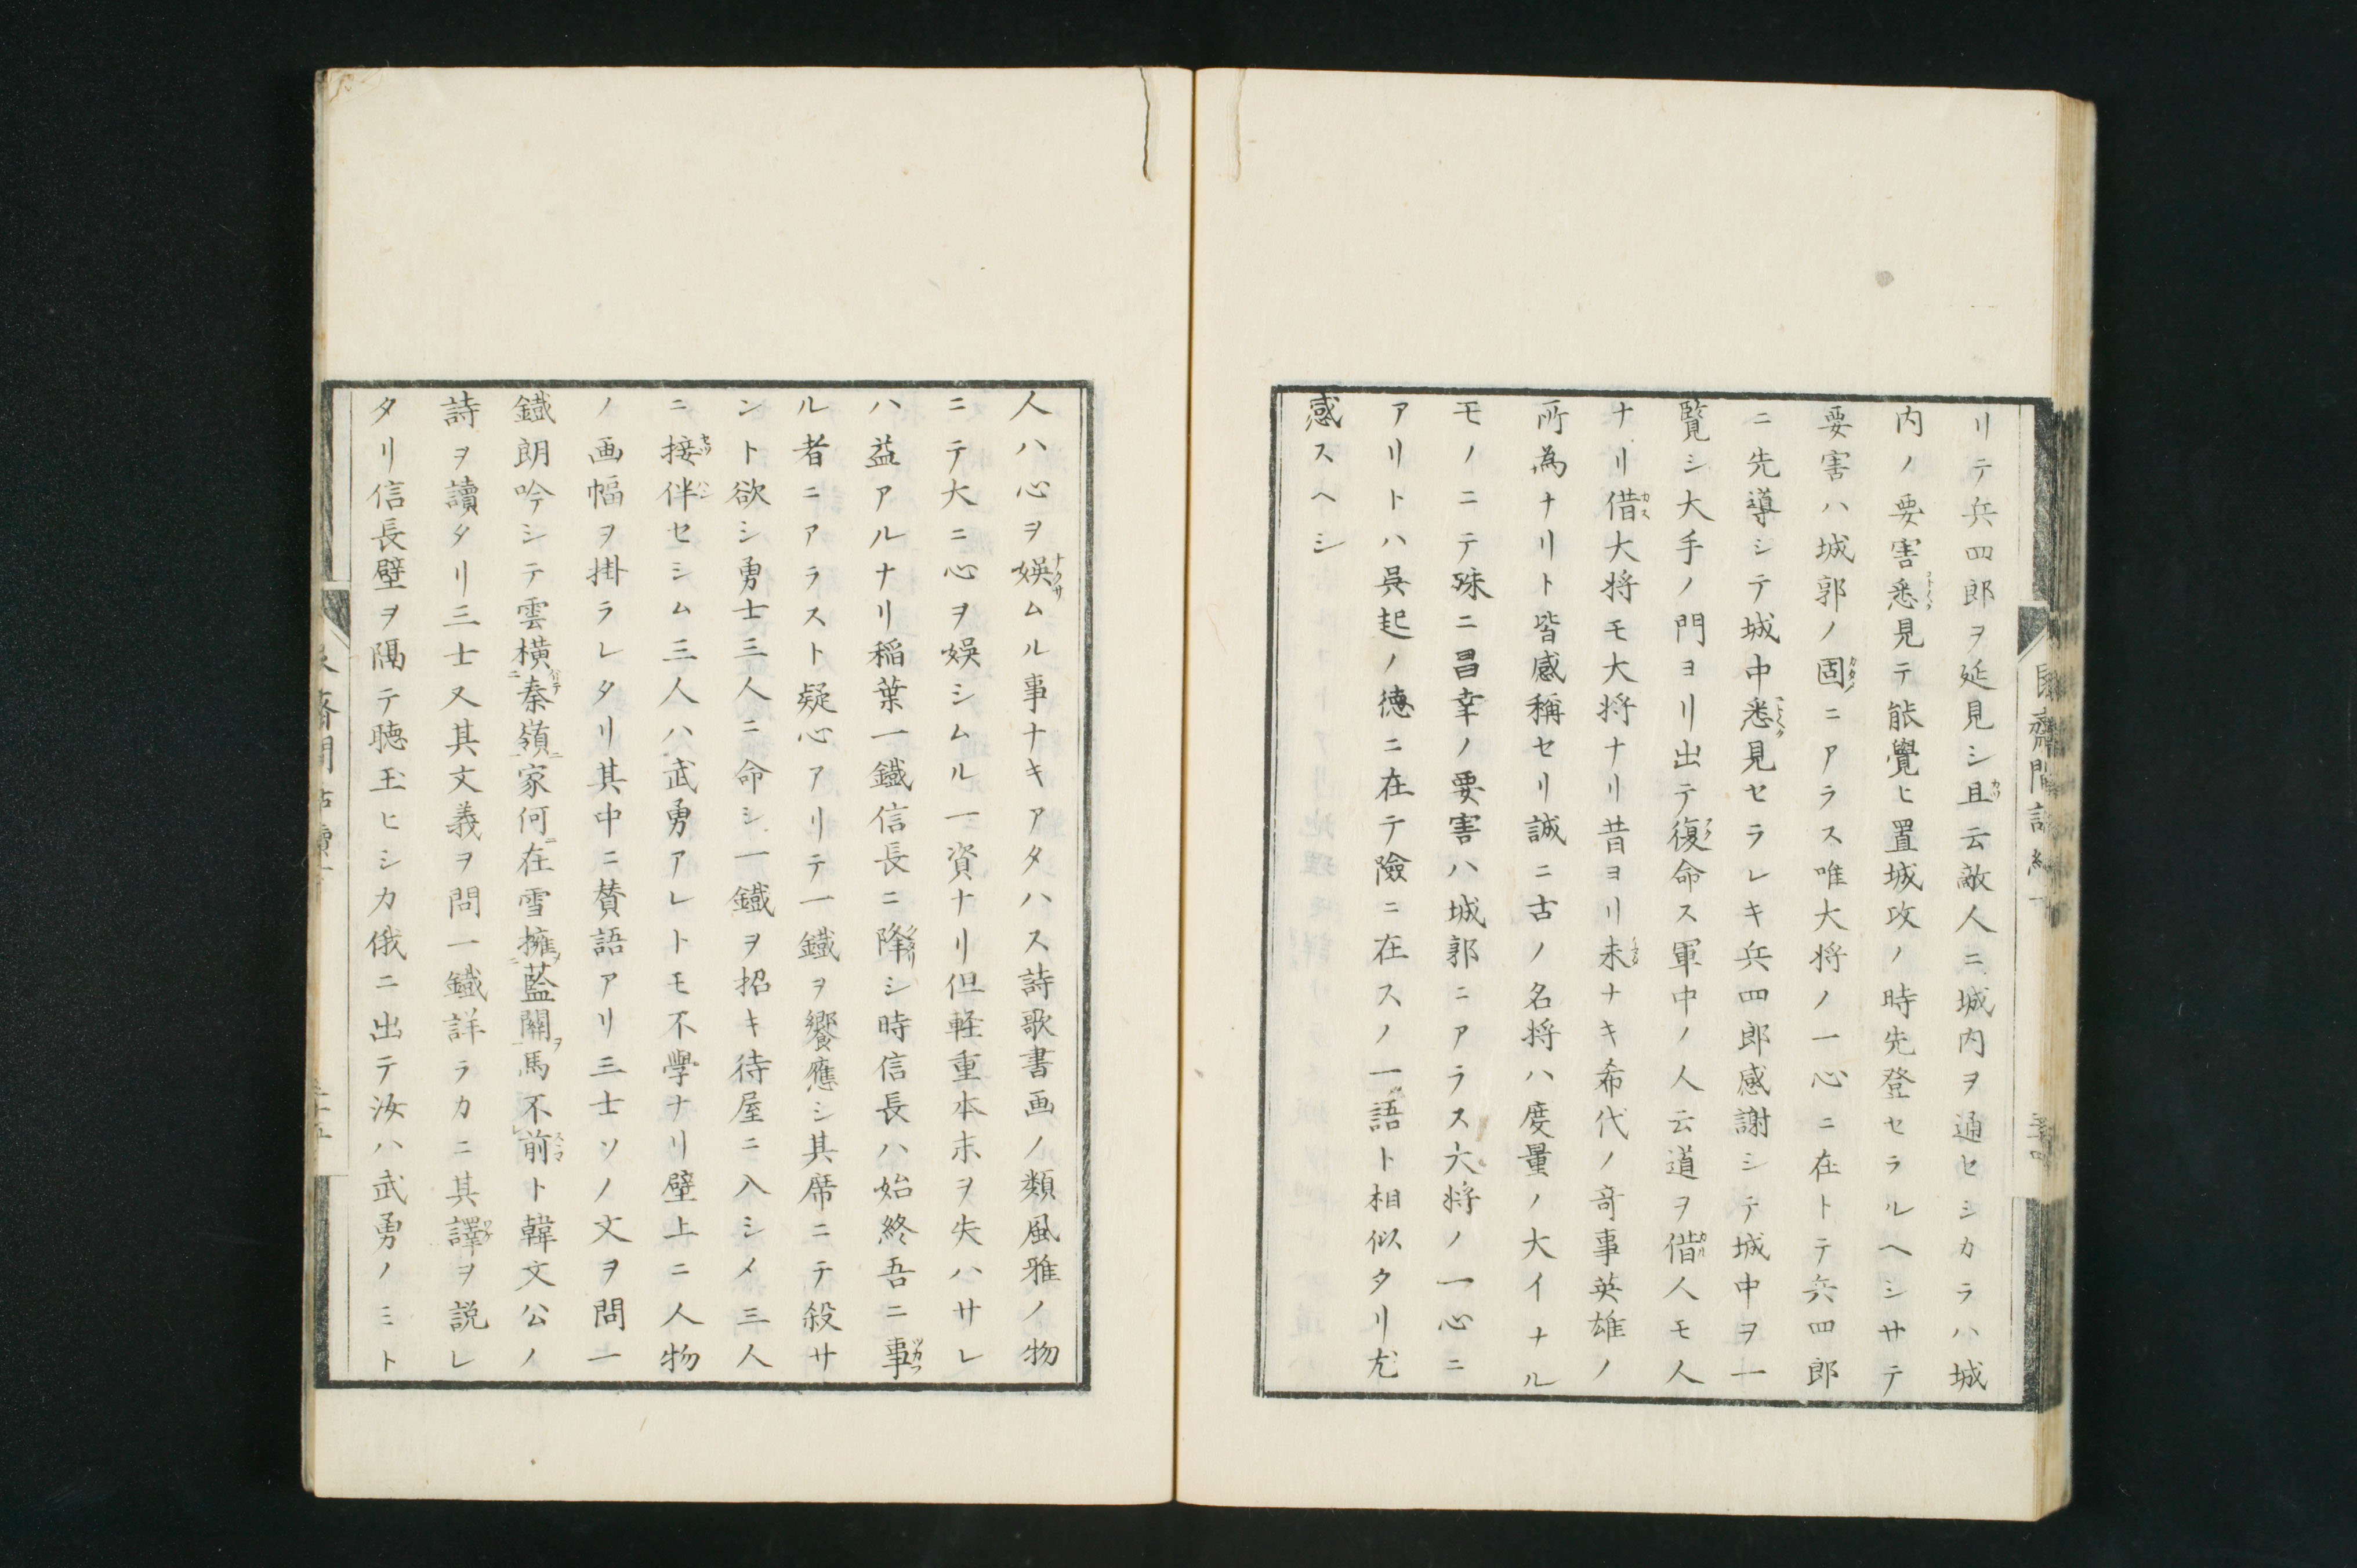 リテ兵四郎ヲ延見シ且云敵人ニ城内ヲ通セシカラハ城
内ノ要害悉見テ能覺ヒ置城攻ノ時先登セラルヘシサテ
要害ハ城郭ノ固ニアラス唯大将ノ一心ニ在トテ兵四郎
ニ先導シテ城中悉見セラレキ兵四郎感謝シテ城中ヲ一
覽シ大手ノ門ヨリ出テ復命ス軍中ノ人云道ヲ借人モ人
ナリ借大将モ大将ナリ昔ヨリ未ナキ希代ノ竒事英雄ノ
所為ナリト皆感稱セリ誠ニ古ノ名将ハ度量ノ大イナル
モノニテ殊ニ昌幸ノ要害ハ城郭ニアラス大将ノ一心ニ
アリトハ呉起ノ徳ニ在テ險ニ在スノ一語ト相似タリ尤
感スヘシ
人ハ心ヲ娯ムル事ナキアタハス詩歌書画ノ類風雅ノ物
ニテ大ニ心ヲ娯シムル一資ナリ但軽重本末ヲ失ハサレ
ハ益アルナリ稲葉一鐵信長ニ降シ時信長ハ始終吾ニ事
ル者ニアラスト疑心アリテ一鐵ヲ饗應シ其席ニテ殺サ
ント欲シ勇士三人ニ命シ一鐵ヲ招キ待屋ニ入シメ三人
ニ接伴セシム三人ハ武勇アレトモ不學ナリ壁上ニ人物
ノ画幅ヲ掛ラレタリ其中ニ賛語アリ三士ソノ文ヲ問一
鐵朗吟シテ雲横秦嶺家何在雪擁藍關馬不前ト韓文公ノ
詩ヲ讀タリ三士又其文義ヲ問一鐵詳ラカニ其譯ヲ説レ
タリ信長壁ヲ隔テ聴玉ヒシカ俄ニ出テ汝ハ武勇ノミト